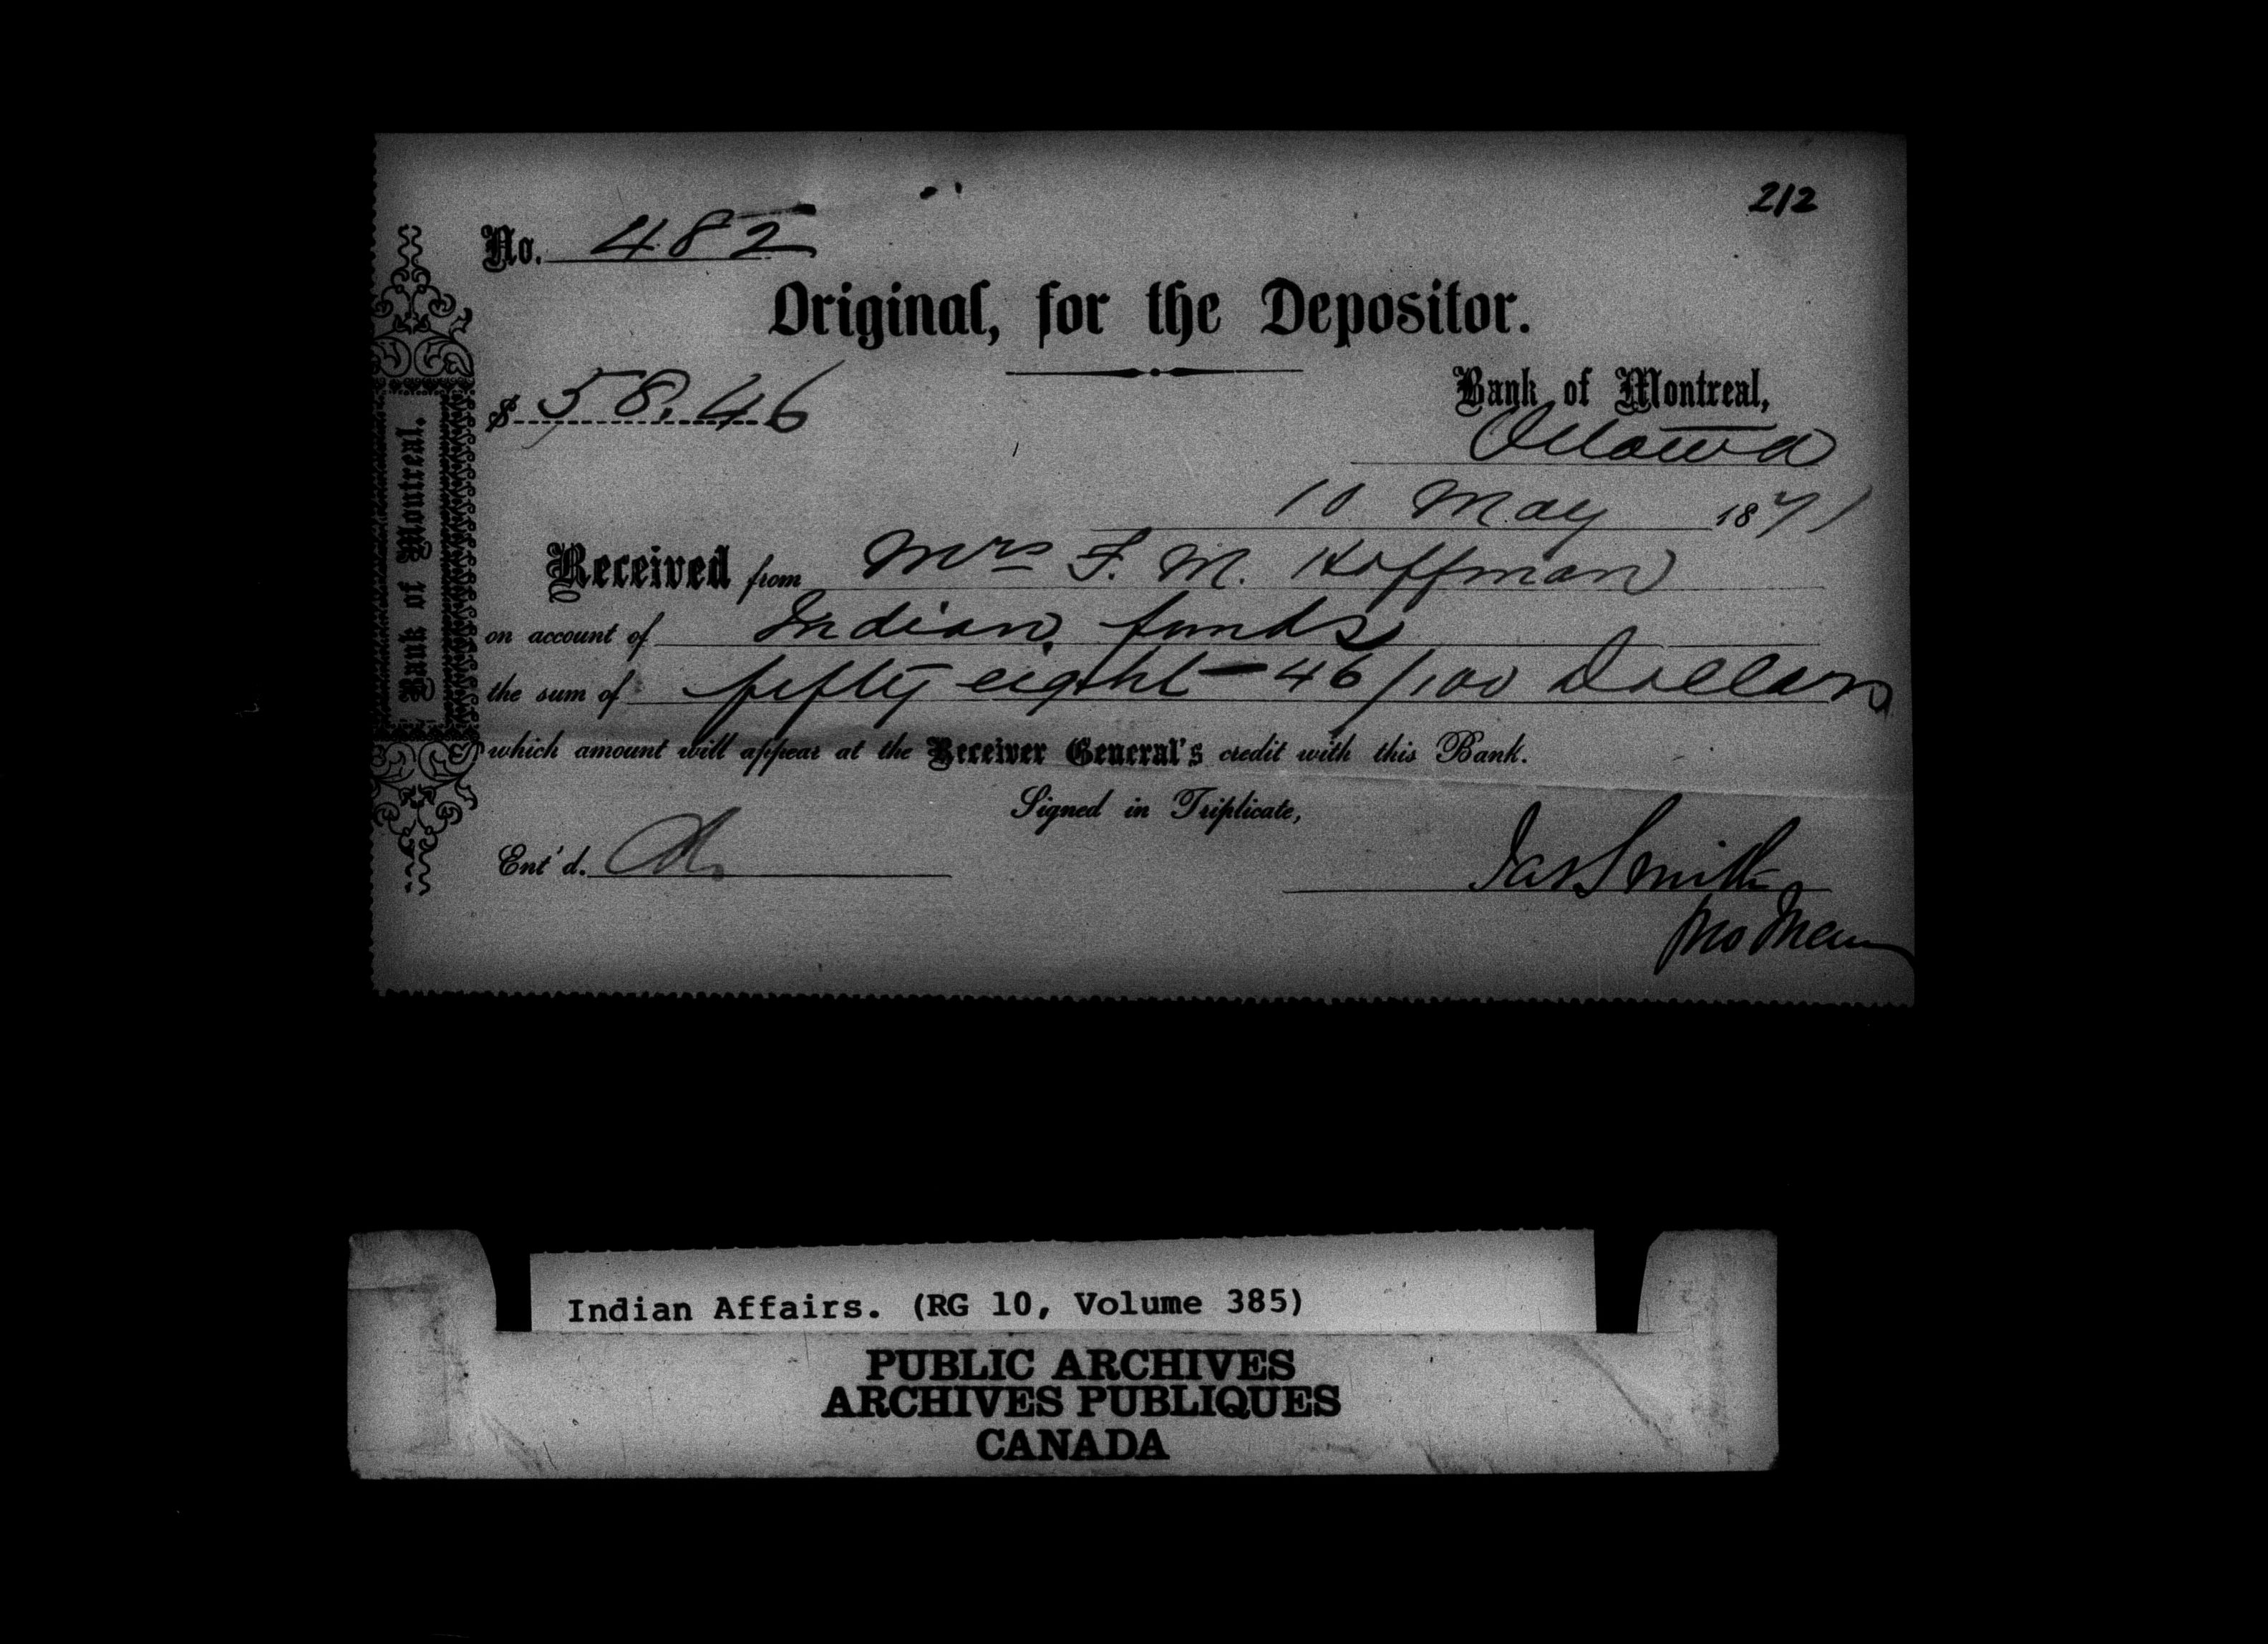 212
No. 482
Original, for the Depositor.
$ 58.46
Bank of Montreal,
Ottawa
10 May 1871
Received from Mrs F. M. Hoffman
on account of Indian funds
the sum of fifty eight - 46/100 Dollars
which amount will appear at the Receiver General's credit with this Bank.
Signed in Triplicate,
Ent'd.
Jas Smith
Bank of Montreal.
Indian Affairs. (RG 10, Volume 385)
PUBLIC ARCHIVES
ARCHIVES PUBLIQUES
CANADA